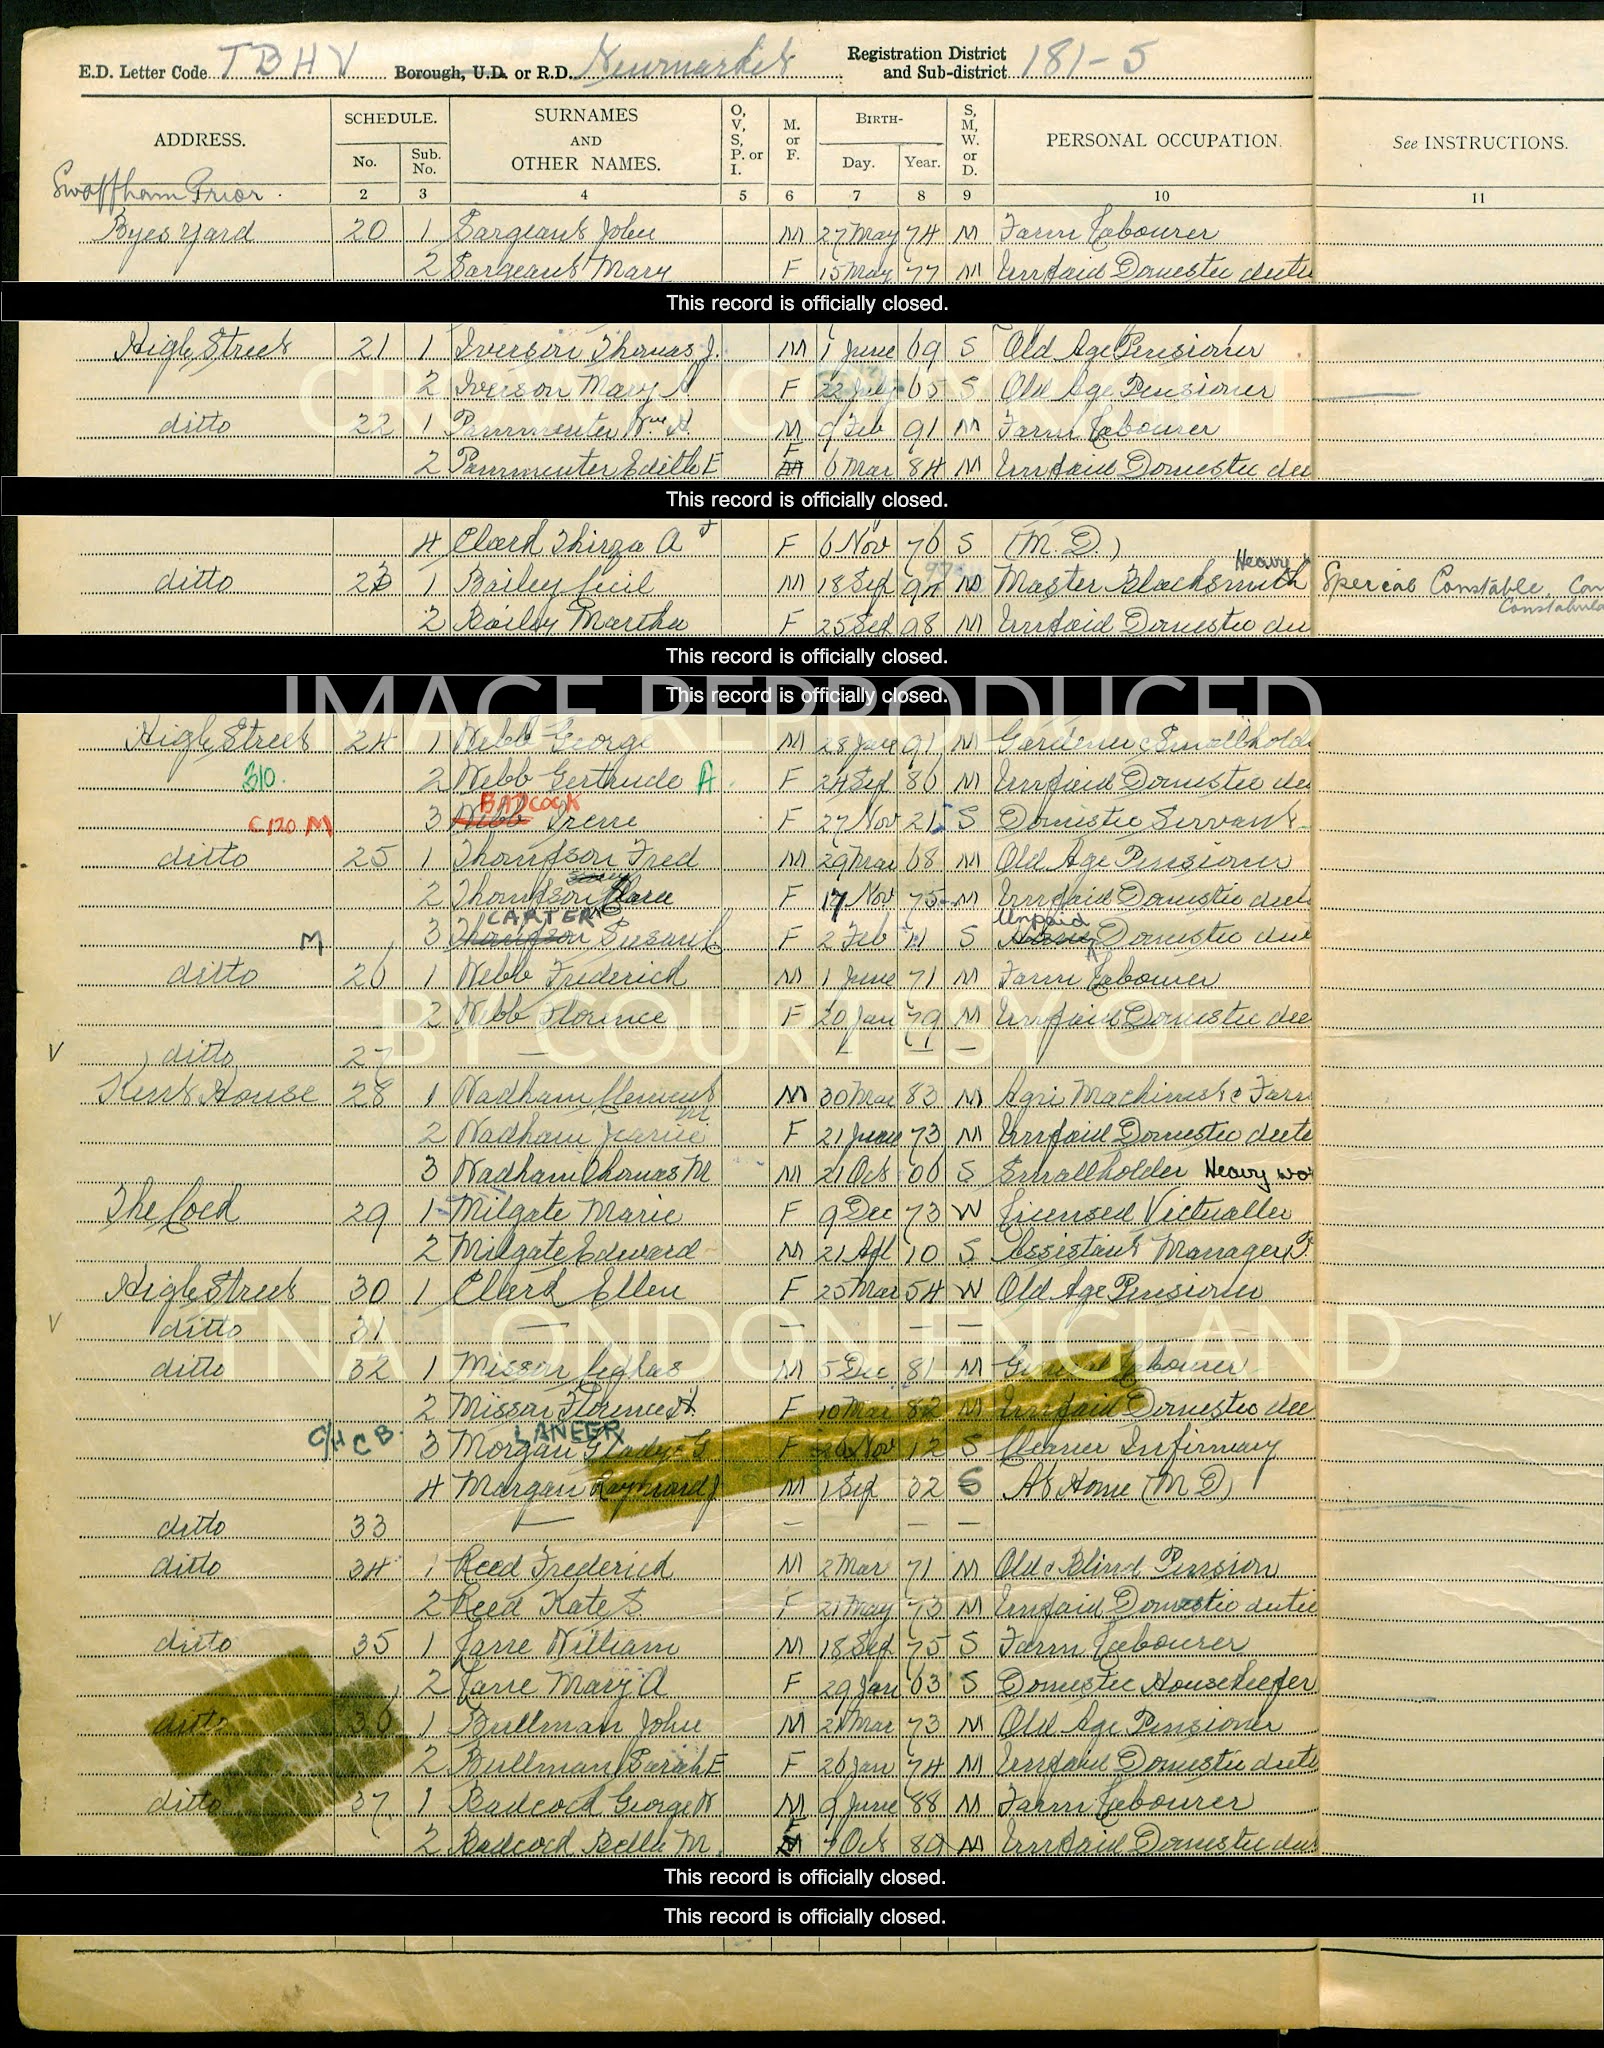 E.D. Letter Code TBHV Borough, U.D. or R.D. Newmarket Registration District and Sub-district 181-5
ADDRESS. SCHEDULE. No. Sub. No. SURNAMES AND OTHER NAMES. O, V, S, P. or I. M. or F. BIRTH- Day. Year. S, M, W. or D. PERSONAL OCCUPATION. See INSTRUCTIONS.
Swaffham Prior. 2 3 4 5 6 7 8 9 10 11
Byes Yard 20 1 Sargeant John M 27 May 74 M Farm Labourer
2 Sargeant Mary F 15 May 77 M Unpaid Domestic dutie
This record is officially closed.
High Street 21 1 Iverson Thomas J. M 1 June 69 S Old Age Pensioner
2 Iverson Mary A F 22 July 65 S Old Age Pensioner
CROWN COPYRIGHT
ditto 22 1 Parmenter Wm H. M 9 Feb 91 M Farm Labourer
2 Parmenter Edith E F 6 Mar 84 M Unpaid Domestic du
This record is officially closed.
4 Clark Thirza A F 6 Nov 76 S (M.D.)
ditto 23 1 Bailey Cecil M 18 Sep M Master Blacksmith Heavy Special Constable. Con
Constabula
2 Bailey Martha F 25 Sep 98 M Unpaid Domestic du
This record is officially closed.
This record is officially closed.
IMAGE REPRODUCED
High Street 24 1 Webb George M 28 Jan 91 M Gardener & Smallhold
310. 2 Webb Gertrude A. F 24 Sep 80 M Unpaid Domestic du
BADCOCK
C120 M 3 Webb Irene F 27 Nov 21 S Domestic Servant
ditto 25 1 Thompson Fred M 29 Mar 68 M Old Age Pensioner
2 Thompson Clara F 17 Nov 75 M Unpaid Domestic duti
CARTER Unpaid
M 3 Thompson Susan C F 2 Feb 11 S Domestic dut
ditto 26 1 Webb Frederick M 1 June 71 M Farm Labourer
2 Webb Florence F 20 Jan 79 M Unpaid Domestic du
BY COURTESY OF
V ditto 27 — — — —
Kent House 28 1 Wadham Clement M 30 Mar 83 M Agri Machinist & Farm
2 Wadham Jeanie M F 21 June 73 M Unpaid Domestic dutie
3 Wadham Thomas M M 21 Oct 06 S Smallholder Heavy wor
The Cock 29 1 Milgate Marie F 9 Dec 73 W Licensed Victualler
2 Milgate Edward M 21 Apl 10 S Assistant Manager P.
High Street 30 1 Clark Ellen F 25 Mar 54 W Old Age Pensioner
V ditto 31 — — — —
TNA LONDON ENGLAND
ditto 32 1 Misson Cephas M 5 Dec 81 M General Labourer
2 Misson Florence H. F 10 Mar 82 M Unpaid Domestic du
LANEER
C/H C B. 3 Morgan Gladys G F 26 Nov 12 S Cleaner Infirmary
4 Morgan Raymond J M 1 Sep 32 S At Home (M D)
ditto 33 — — —
ditto 34 1 Reed Frederick M 2 Mar 71 M Old & Blind Pension
2 Reed Kate S. F 21 May 73 M Unpaid Domestic dutie
ditto 35 1 Carre William M 18 Sep 75 S Farm Labourer
2 Carre Mary A F 29 Jan 63 S Domestic Housekeeper
ditto 36 1 Bullman John M 21 Mar 73 M Old Age Pensioner
2 Bullman Sarah E F 26 Jan 74 M Unpaid Domestic duti
ditto 37. 1 Badcock George W M 9 June 88 M Farm Labourer
2 Badcock Bella M. F 7 Oct 89 M Unpaid Domestic dut
This record is officially closed.
This record is officially closed.